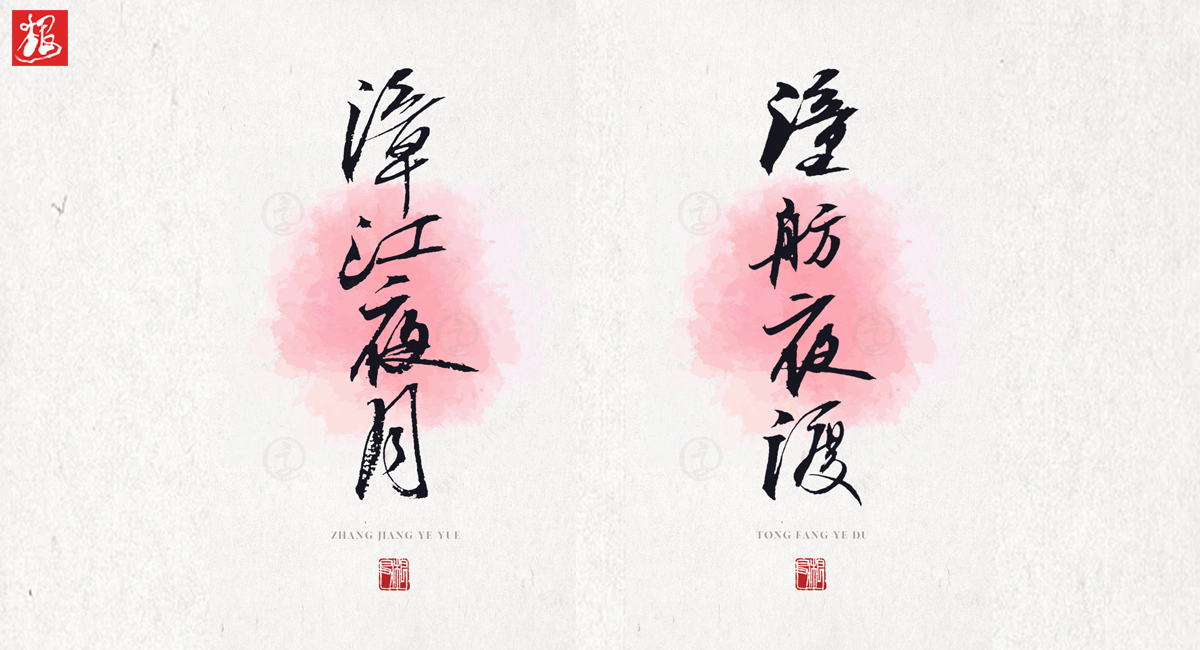 漳江夜月
ZHANG JIANG YE YUE
潼舫夜渡
TONG FANG YE DU